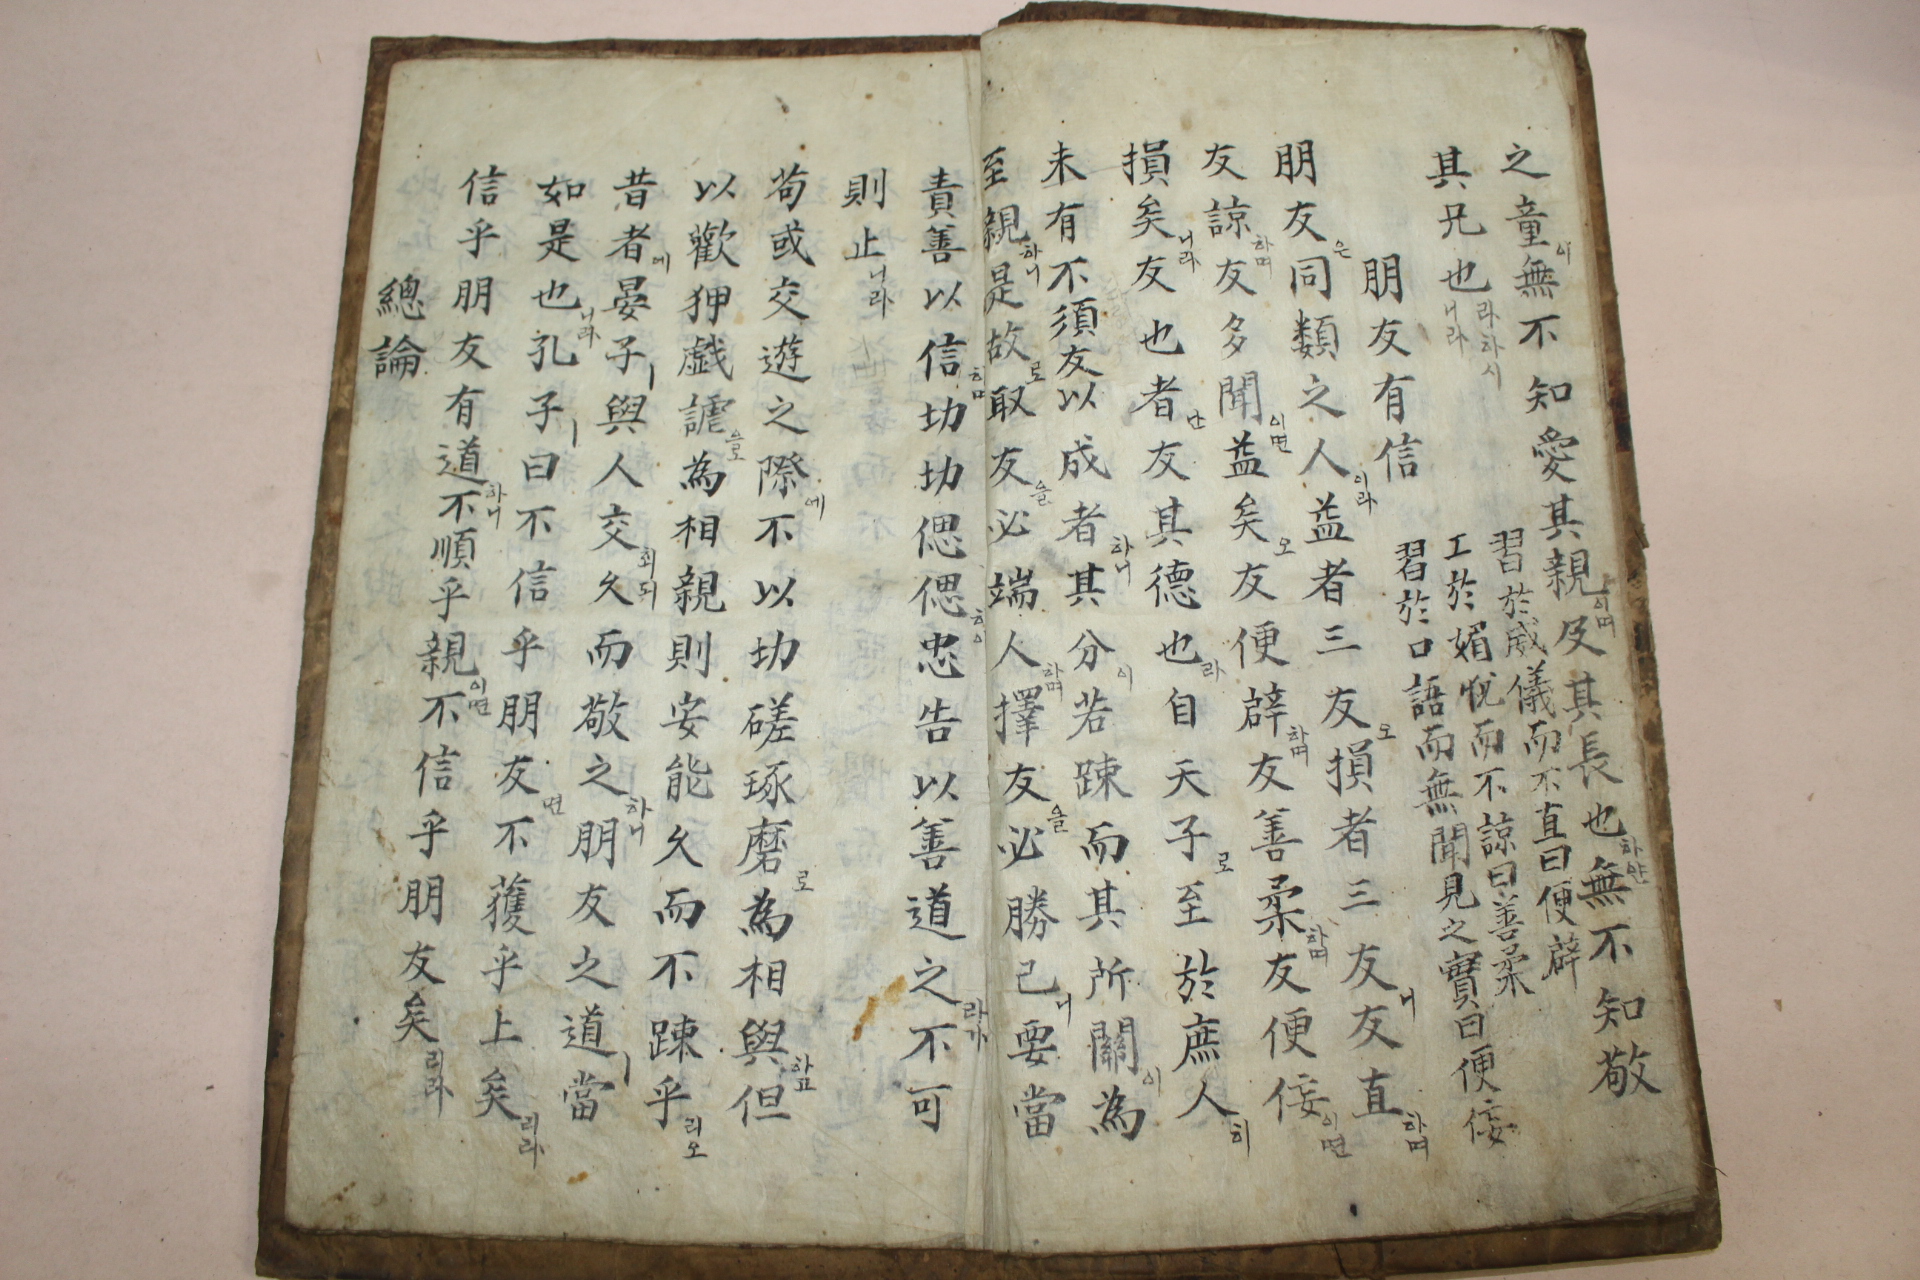 之童이無不知愛其親이며及其長也하얀無不知敬
其兄也라하시니라
習於威儀而不直曰便辟
工於媚悅而不諒曰善柔
習於口語而無聞見之實曰便佞
朋友有信
朋友은同類之人이라益者三友오損者三友니友直하며
友諒하며友多聞이면益矣오友便辟하며友善柔하며友便佞이면
損矣니라友也者난友其德也라自天子로至於庶人히
未有不須友以成者하니其分이若踈而其所關이為
至親하니是故로取友을必端人하며擇友을必勝己니要當
責善以信하며切切偲偲히忠告以善道之라가不可
則止니라
苟或交遊之際에不以切磋琢磨로為相與하고但
以歡狎戱謔을로為相親則安能久而不踈乎리오
昔者에晏子ㅣ與人交최되久而敬之하니朋友之道ㅣ當
如是也니라孔子ㅣ曰不信乎朋友면不獲乎上矣리라
信乎朋友有道하니不順乎親이면不信乎朋友矣리라
總論